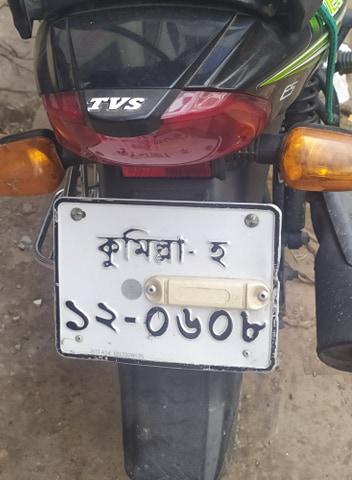 TVS
ES
কুমিল্লা- হ
১২-০৬০৮